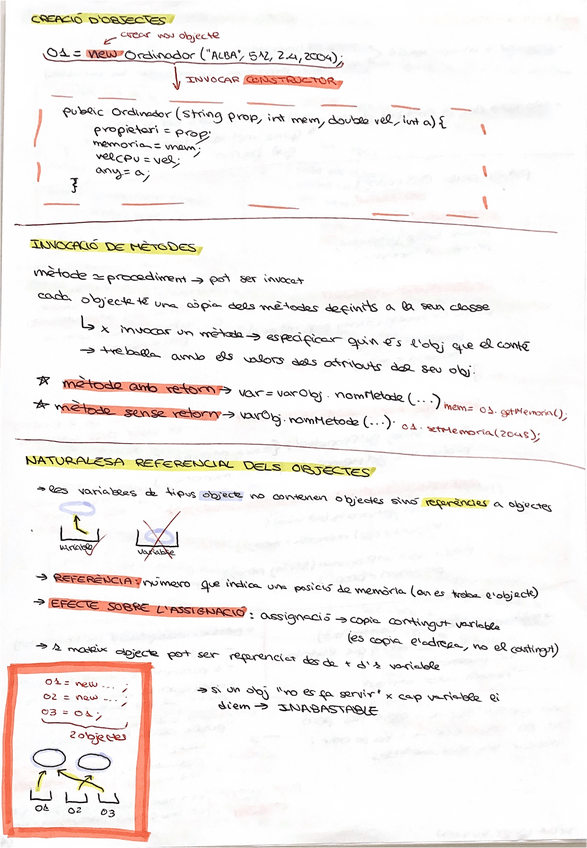 CREACIÓ D'OBJECTES
crear nou objecte
O1 = new Ordinador ("ALBA", 512, 2.4, 2004);
INVOCAR CONSTRUCTOR
public Ordinador (string prop, int mem, double vel, int a) {
propietari = prop;
memoria = mem;
velCPU = vel;
any = a;
}
INVOCACIÓ DE MÈTODES
mètode ≃ procediment → pot ser invocat
cada objecte té una còpia dels mètodes definits a la seva classe
↳ x invocar un mètode → especificar quin és l'obj que el conté
→ treballa amb els valors dels atributs del seu obj.
☆ mètode amb retorn → var = varObj.nomMetode (...) mem = O1.getMemoria();
☆ mètode sense retorn → varObj.nomMetode (...). O1.setMemoria(2048);
NATURALESA REFERENCIAL DELS OBJECTES
→ les variables de tipus objecte no contenen objectes sinó referències a objectes
variable variable
→ REFERÈNCIA: número que indica una posició de memòria (on es troba l'objecte)
→ EFECTE SOBRE L'ASSIGNACIÓ: assignació → copia contingut variable
(es copia l'adreça, no el contingut)
→ 1 mateix objecte pot ser referenciat des de + d'1 variable
O1 = new ... ;
O2 = new ... ;
O3 = O1;
2 objectes
O1 O2 O3
→ si un obj "no es fa servir" x cap variable li
diem → INABASTABLE